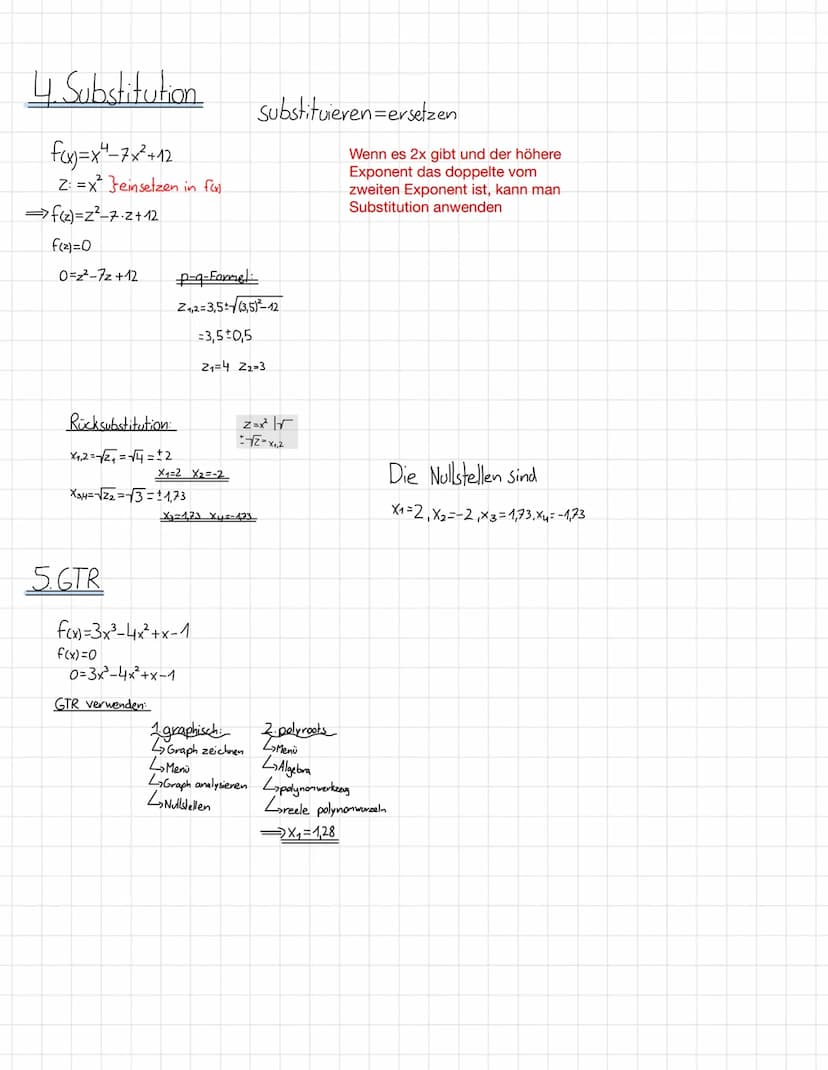 4. Substitution
substituieren=ersetzen
f(x)=x⁴-7x²+12
Wenn es 2x gibt und der höhere
Exponent das doppelte vom
zweiten Exponent ist, kann man
Substitution anwenden
z:=x² }einsetzen in f(x)
⇒f(z)=z²-7·z+12
f(z)=0
0=z²-7z+12
p-q-Formel:
z₁,₂=3,5±√(3,5)²-12
=3,5±0,5
z₁=4 z₂=3
Rücksubstitution:
z=x² |√
±√z=x₁,₂
x₁,₂=√z₁=√4=±2
x₁=2 x₂=-2
x₃,₄=√z₂=√3=±1,73
x₃=1,73 x₄=-1,73
Die Nullstellen sind
x₁=2, x₂=-2, x₃=1,73, x₄=-1,73
5. GTR
f(x)=3x³-4x²+x-1
f(x)=0
0=3x³-4x²+x-1
GTR verwenden:
1. graphisch:
↳Graph zeichnen
↳Menü
↳Graph analysieren
↳Nullstellen
2. polyroots
↳Menü
↳Algebra
↳polynomwerkzeug
↳reele polynomwurzeln
⇒x₁=1,28